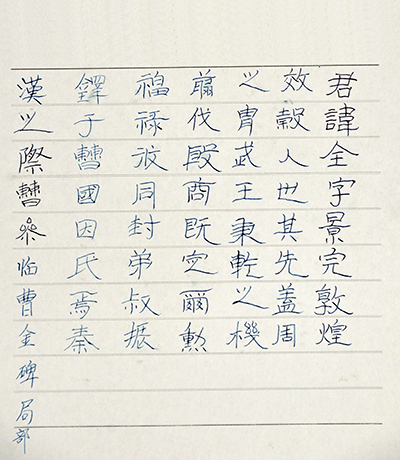 君諱全字景完敦煌
效穀人世其先蓋周
之胄武王秉乾之機
翦伐殷商既定爾勳
福祿攸同封弟叔振
鐸于曹國因氏焉秦
漢之際曹參临曹全碑局部